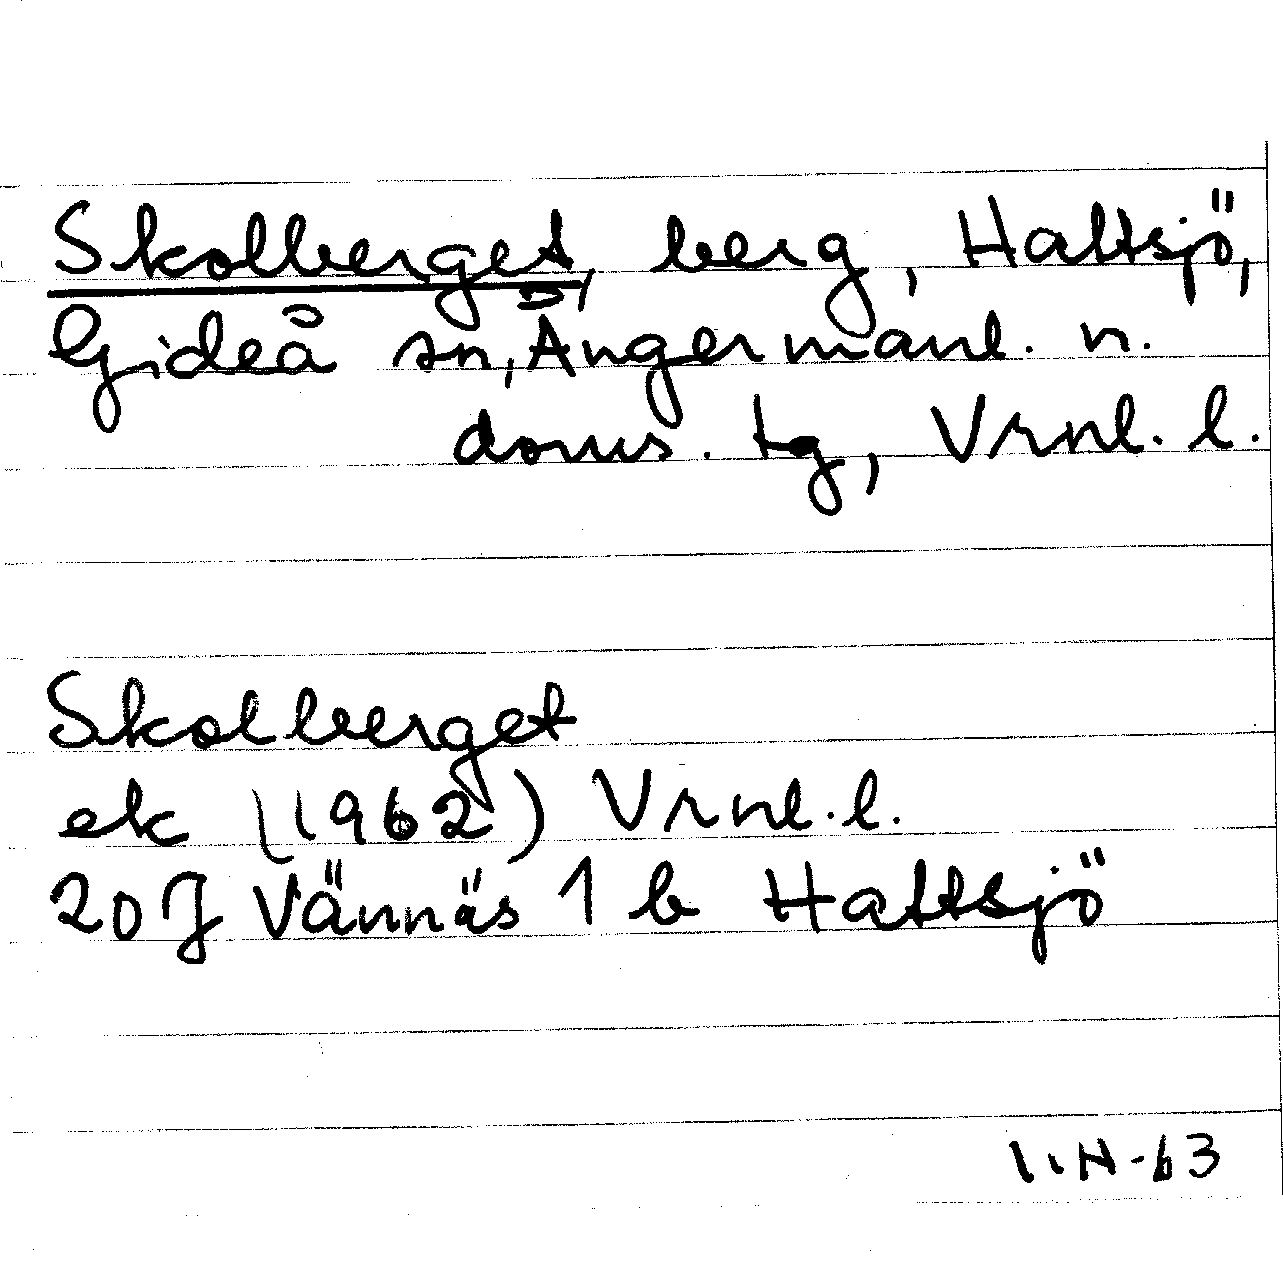 Skolberget, berg, Hattsjö,
Gideå sn, Ångermanl. n.
doms. tg, Vrnl. l.
Skolberget
ek (1962) Vrnl. l.
20 J Vännäs 1 b Hattsjö
-63